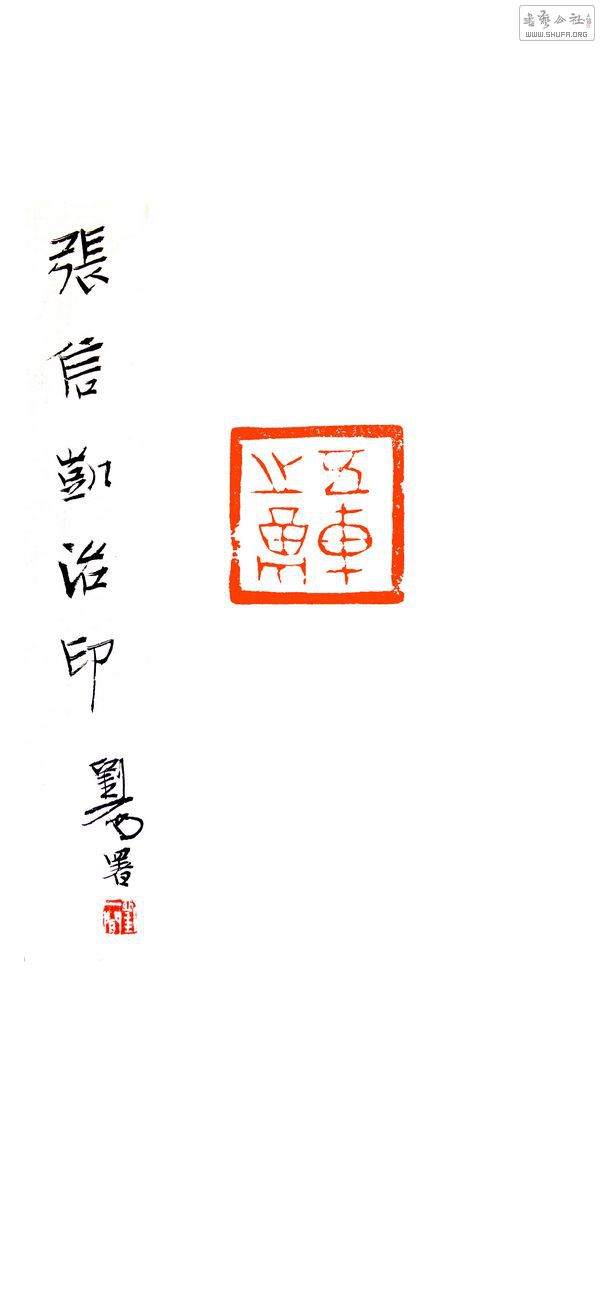 書藝公社
WWW.SHUFA.ORG
張信凱治印
劉署
五車